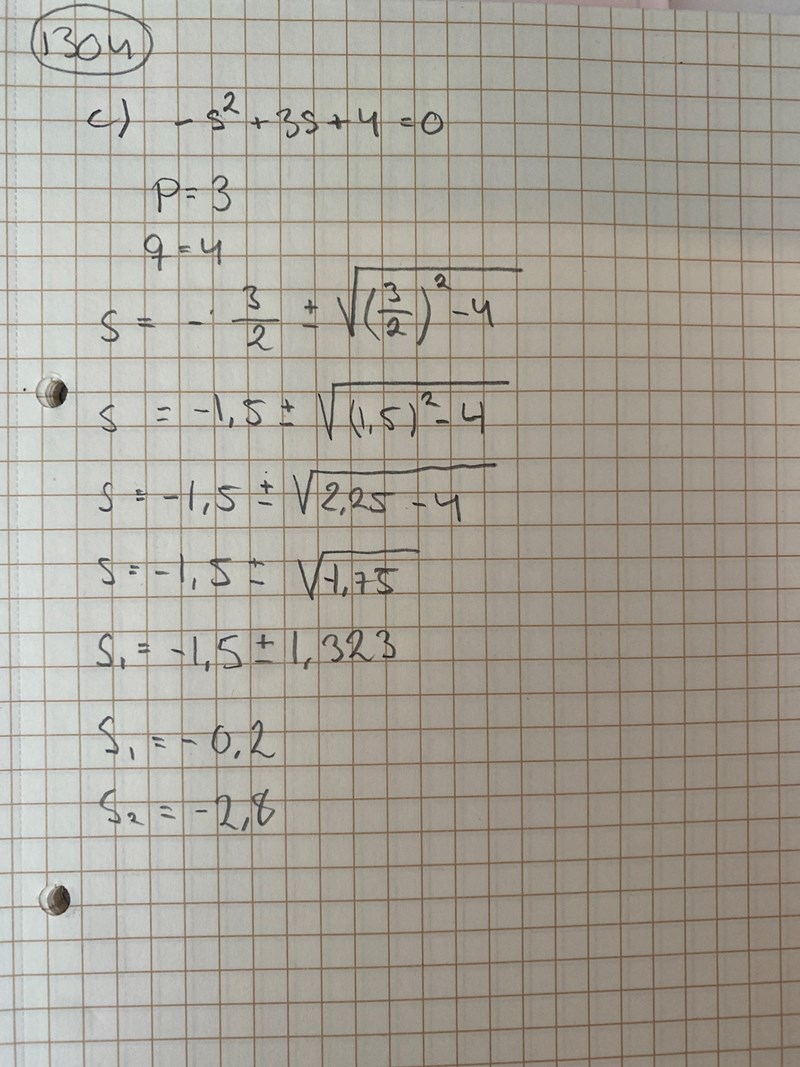 1304
c) -s² + 3s + 4 = 0
p = 3
q = 4
s = - 3/2 ± √((3/2)² - 4)
s = -1,5 ± √((1,5)² - 4)
s = -1,5 ± √(2,25 - 4)
s = -1,5 ± √(-1,75)
s₁ = -1,5 ± 1,323
s₁ = - 0,2
s₂ = -2,8